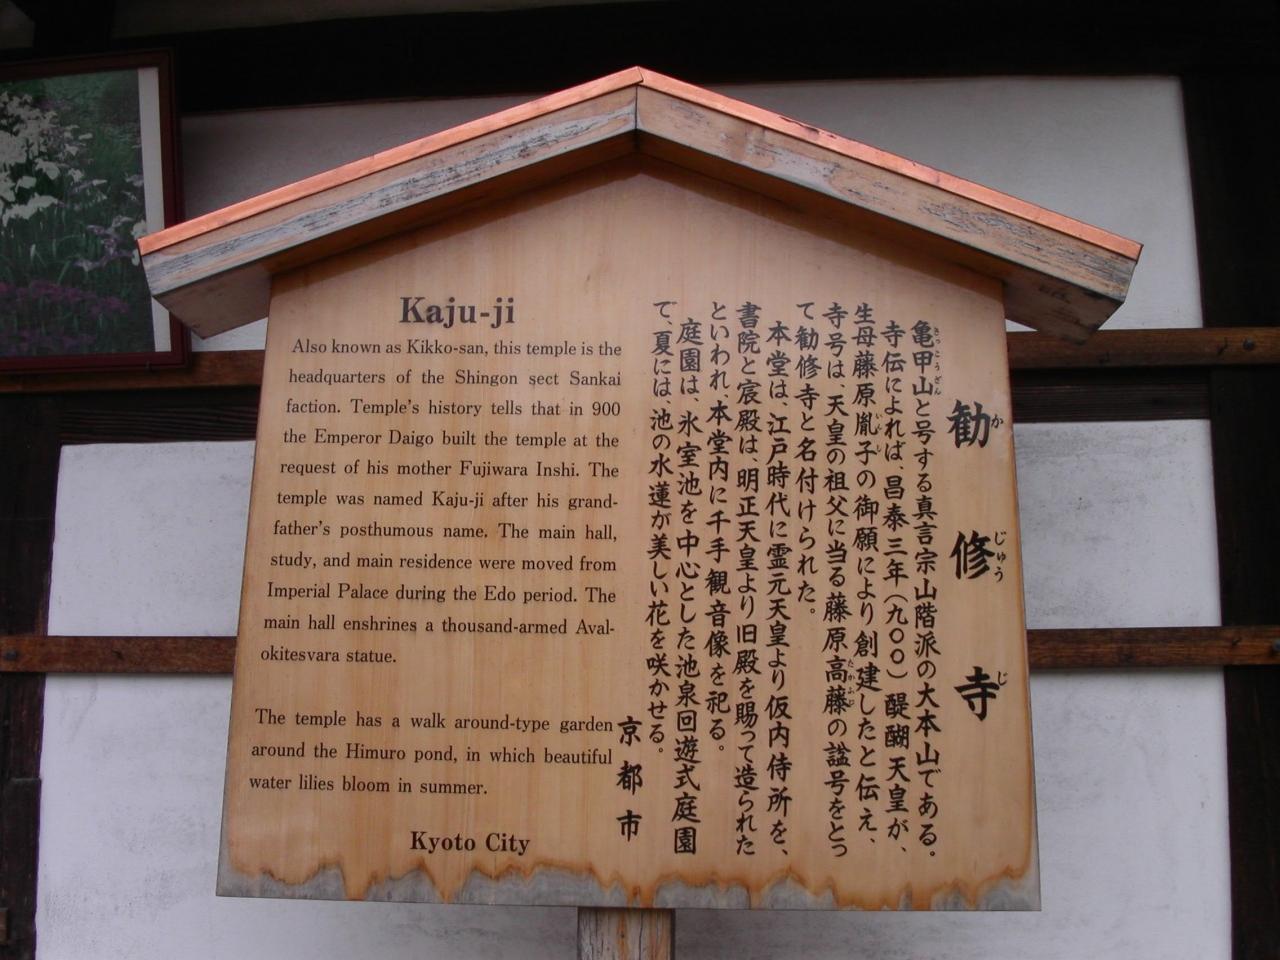 Kaju-ji
Also known as Kikko-san, this temple is the
headquarters of the Shingon sect Sankai
faction. Temple's history tells that in 900
the Emperor Daigo built the temple at the
request of his mother Fujiwara Inshi. The
temple was named Kaju-ji after his grand-
father's posthumous name. The main hall,
study, and main residence were moved from
Imperial Palace during the Edo period. The
main hall enshrines a thousand-armed Aval-
okitesvara statue.
The temple has a walk around-type garden
around the Himuro pond, in which beautiful
water lilies bloom in summer.
Kyoto City
勧修寺
か じゅう じ
亀甲山と号する真言宗山階派の大本山である。
きっこうざん
寺伝によれば、昌泰三年(九〇〇)醍醐天皇が、
生母藤原胤子の御願により創建したと伝え、
いんし
寺号は、天皇の祖父に当る藤原高藤の諡号をとっ
たかふじ
て勧修寺と名付けられた。
本堂は、江戸時代に霊元天皇より仮内侍所を、
書院と宸殿は、明正天皇より旧殿を賜って造られた
といわれ、本堂内に千手観音像を祀る。
庭園は、氷室池を中心とした池泉回遊式庭園
で、夏には、池の水蓮が美しい花を咲かせる。
京都市